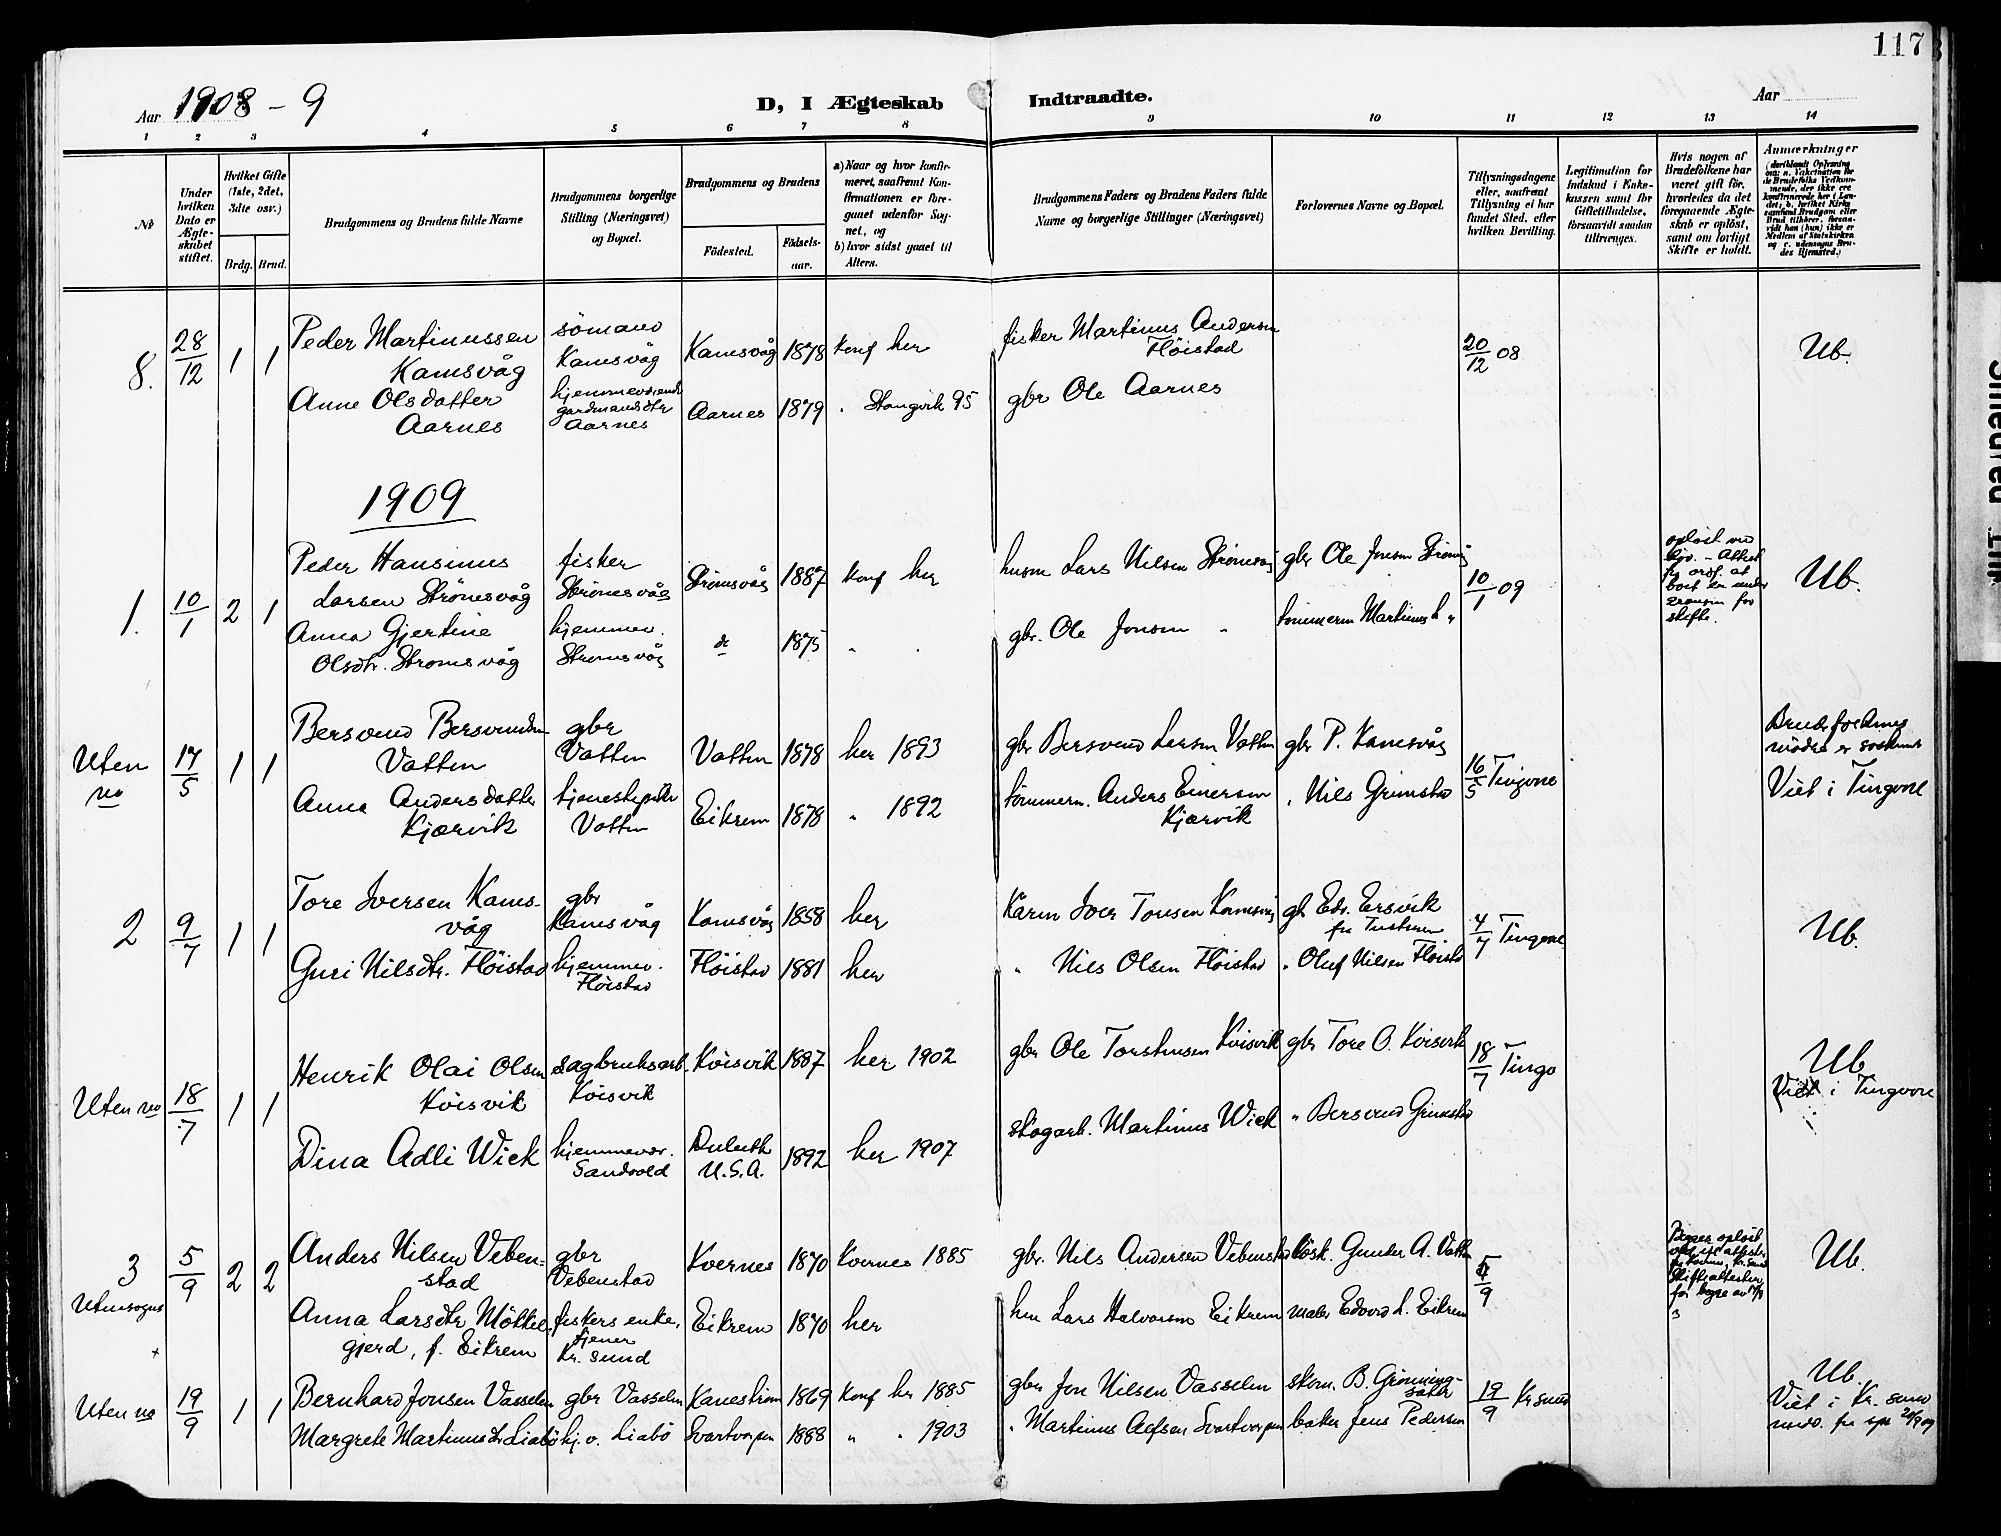 117
Aar 1908 - 9
D, I Ægteskab Indtraadte.
Aar
1 2 3 4 5 6 7 8 9 10 11 12 13 14
No
Under hvilken Dato er Ægteskabet stiftet.
Hvilket Gifte (1ste, 2det, 3die osv.)
Brdg. Brud.
Brudgommens og Brudens fulde Navne
Brudgommens borgerlige Stilling (Næringsvei) og Bopæl.
Brudgommens og Brudens
Fødested. Fødselsaar.
a) Naar og hvor konfirmeret, saafremt Konfirmationen er foregaaet udenfor Sognet, og
b) hvor sidst gaaet til Alters.
Brudgommens Faders og Brudens Faders fulde Navne og borgerlige Stillinger (Næringsvei)
Forlovernes Navne og Bopæl.
Tillysningsdagene eller, saafremt Tillysning ei har fundet Sted, efter hvilken Bevilling.
Legitimation for Indskud i Enkekassen samt for Giftetilladelse, forsaavidt saadan tiltrænges.
Hvis nogen af Brudefolkene har været gift før, hvorledes da det foregaaende Ægteskab er opløst, samt om lovligt Skifte er holdt.
Anmærkninger
8. 28/12 1 1
Peder Martinussen Kamsvåg
sömand Kamsvåg
Kamsvåg 1878 Konf her
fisker Martinus Andersen Flöistad
20/12 08
Ub.
Anne Olsdatter Aarnes
hjemmeværende gardmandsdtr Aarnes
Aarnes 1879 " Stangvik 95
gbr Ole Aarnes
1909
1. 10/1 2 1
Peder Hansinus Larsen Strömsvåg
fisker Strömsvåg
Strömsvåg 1887 Konf her
husm Lars Nilsen Strömsvåg
gbr Ole Jonsen Strömsvåg
10/1 09
Ub.
Anna Gjertine Olsdtr. Strömsvåg
hjemmev. Strömsvåg
do 1875 " "
gbr. Ole Jonsen "
tömmerm Martinus L "
Uten no 17/5 1 1
Bersvend Bersvendsen Vatten
gbr Vatten
Vatten 1878 her 1893
gbr Bersvend Larsen Vatten
gbr P. Kamsvåg
16/5 Tingvoll
Viet i Tingvoll
Anna Andersdatter Kjærvik
tjenestepike Vatten
Eikrem 1878 " 1892
tömmerm. Anders Einersen Kjærvik
" Nils Grimstad
2 9/7 1 1
Tore Iversen Kamsvåg
gbr Kamsvåg
Kamsvåg 1858 her
Kårm Iver Toresen Kamsvåg
gb Edv. Ersvik fra Tustern
4/7 Tingvoll
Ub.
Guri Nilsdtr. Flöistad
hjemmev. Flöistad
Flöistad 1881 her
" Nils Olsen Flöistad
" Oluf Nilsen Flöistad
Uten no 18/7 1 1
Henrik Olai Olsen Kvisvik
sagbruksarb. Kvisvik
Kvisvik 1887 her 1902
gbr Ole Torstensen Kvisvik
gbr Tore O. Kvisvik
18/7 Tingv
Ub
Viet i Tingvoll
Dina Adli Wick
hjemmevær. Sandvold
Duluth U.S.A. 1892 her 1907
skogarb. Martinus Wick
" Bersvend Grimstad
3 Utensogns 5/9 2 2
Anders Nilsen Vebenstad
gbr Vebenstad
Kvernes 1870 Kvernes 1885
gbr. Nils Andersen Vebenstad
lösk. Gunder A. Vatten
5/9
Ub.
Anna Larsdtr Mökkelgjerd, f. Eikrem
fiskers enke, tjener Kr. sund
Eikrem 1870 her
hm Lars Halvorsen Eikrem
maler Edvard L. Eikrem
Uten no 19/9 1 1
Bernhard Jonsen Vasselen
gbr Vasselen
Kaneström 1869 Konf her 1885
gbr Jon Nilsen Vasselen
skom. B. Grönningsæter
19/9 Kr sund
Ub.
Viet i Kr. sund
Margrete Martinusdtr Liabö
hj. v. Liabö
Svartvasen 1888 " " 1903
" Martinus
baker Jens Pedersen